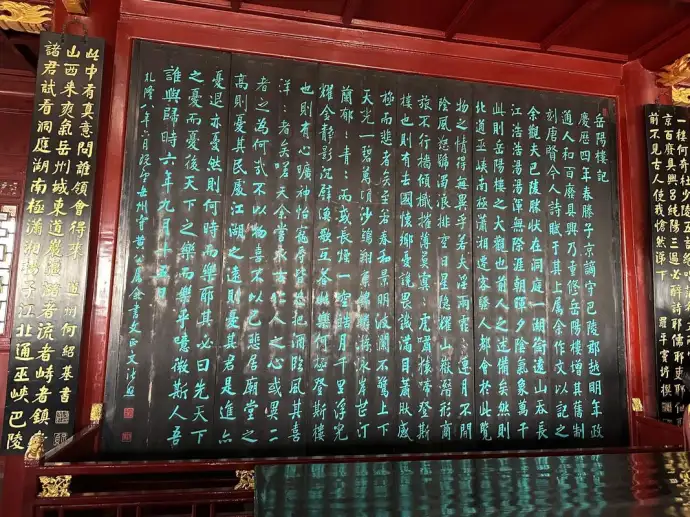 一樓何奇杜少陵五
京百廢具興呂純陽三過必醉詩耶儒耶吏耶
前不見古人使我愴然淚下
岳陽樓記
慶歷四年春滕子京謫守巴陵郡越明年政
通人和百廢具興乃重修岳陽樓增其舊制
刻唐賢今人詩賦于其上屬余作文以記之
余觀夫巴陵勝狀在洞庭一湖銜遠山吞長
江浩浩湯湯渾無際涯朝暉夕陰氣象萬千
此則岳陽樓之大觀也前人之述備矣然則
北通巫峽南極瀟湘遷客騷人都會於此覽
物之情得無異乎若夫淫雨霏〻連月不開
陰風怒號濁浪排空日星隱耀山嶽潛形商
旅不行檣傾楫摧薄暮冥〻虎嘯猿啼登斯
樓也則有去國懷鄉憂讒畏譏滿目蕭然感
極而悲者矣至若春和景明波瀾不驚上下
天光一碧萬頃沙鷗翔集錦鱗游泳岸芷汀
蘭郁〻青〻而或長煙一空皓月千里浮光
耀金靜影沉璧漁歌互答此樂何極登斯樓
也則有心曠神怡寵辱皆忘把酒臨風其喜
洋〻者矣嗟夫余嘗求古仁人之心或異二
者之為何哉不以物喜不以己悲居廟堂之
高則憂其民處江湖之遠則憂其君是進亦
憂退亦憂然則何時而樂耶其必曰先天下
之憂而憂後天下之樂而樂乎噫微斯人吾
誰與歸時六年九月十五日
乾隆八年六月 岳州守黃 屬余書文正文
諸君試看洞庭湖南極瀟湘揚子江北通巫峽巴陵
山西來爽氣岳州城東道巖疆瀦者流者峙者鎮者
此中有真意問誰領會得來 道州何紹基書